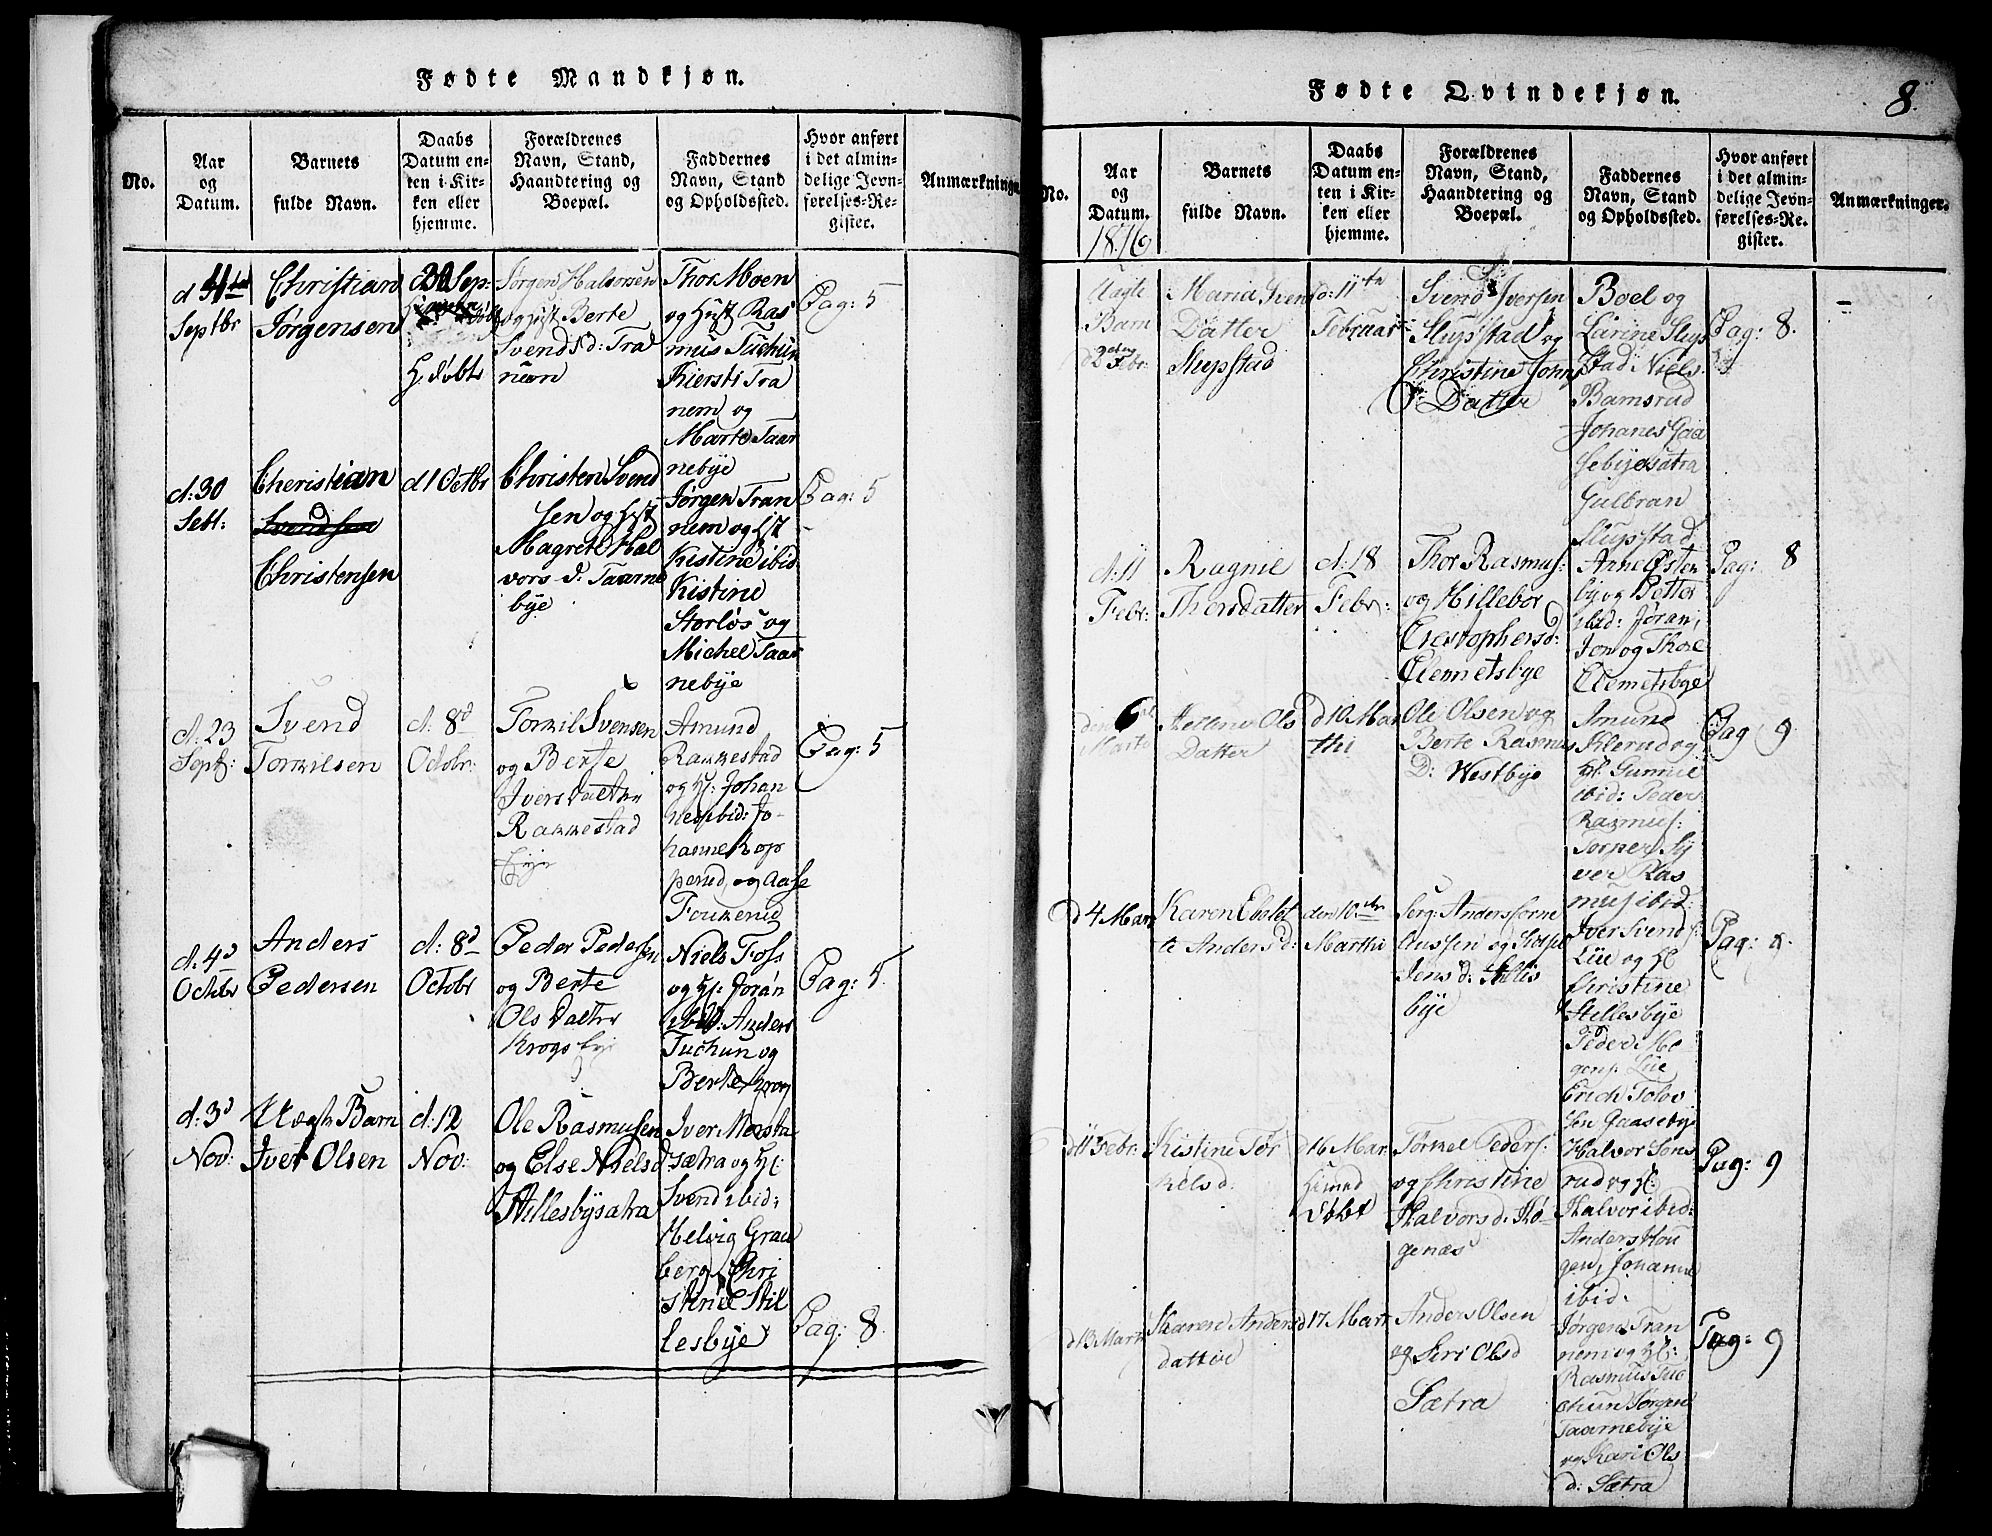 Fødte Mandkjøn.
No.
Aar
og
Datum.
Barnets
fulde Navn.
Daabs
Datum en-
ten i Kir-
ken eller
hjemme.
Forældrenes
Navn, Stand,
Haandtering og
Boepæl.
Faddernes
Navn, Stand
og Opholdssted.
Hvor anført
i det almin-
delige Jevn-
førelses-Re-
gister.
Anmærkninger.
Septbr
Christian
Jørgensen
Sep:
H. døbt
Jørgen Halvorsen
og Hust Berte
Svends d: Tra
nem
Thor Moen
og Hust Ras
mus Tuchun
Kiersti Tra
nem og
Marte Taar
nebye
Pag: 5
d: 30
Sebt:
Cheristian
Svendsen
Christensen
d 1 Octbr
Christen Svend
sen og Hst
Magrete Hal
vors d: Taarne
bye
Jørgen Tran
nem og Hst
Kistine ibid
Kistine
Storløs og
Michel Taar
nebye
Pag: 5
d: 23
Sept:
Svend
Tormilsen
d: 8d
Octobr:
Tormil Svensen
og Berte
Ivers Datter
Rakkestad
Eye
Amund
Rakkestad
og H: Johan
nes ibid: Jo-
hanne Kop
perud, og Aase
Fouxerud
Pag: 5
d: 4d
Octobr
Anders
Pedersen
d: 8d
Octobr
Peder Pedersen
og Berte
Ols Datter
Krogs Eye
Niels Foss
og H: Joran
ibid: Anders
Tuchun og
Berte Krog
Pag: 5
d: 3d
Nov:
Uægte Barn
Iver Olsen
d: 12
Nov:
Ole Rasmusen
og Else Niels d
Stillesbysætra
Iver Morsta
sætra og H:
Svend ibid:
Helvig Grau
berg, Chri
stense Stil
lesbye
Pag: 8
Fødte Qvindekjøn.
8.
No.
Aar
og
Datum.
1816
Barnets
fulde Navn.
Daabs
Datum en-
ten i Kir-
ken eller
hjemme.
Forældrenes
Navn, Stand,
Haandtering og
Boepæl.
Faddernes
Navn, Stand
og Opholdssted.
Hvor anført
i det almin-
delige Jevn-
førelses-Re-
gister.
Anmærkninger.
Uægte
Barn
Febr:
Maria Svens
Datter
Slupstad
d: 11te
Februar
Svend Iversen
Slupstad og
Christine Johns
Datter
Boel og
Larine Slup
stad: Niels
Bamsrud
Johanes Gaa
sebyesætra
Gulbran
Slupstad
Pag: 8.
d: 11
Febr:
Ragnie
Thorsdatter
d: 18
Febr:
Thor Rasmus:
og Hillebor
Crestophersd:
Clemetsbye
Arne Østen
by og Petter
ibid: Jøran,
Jon og Thore
Clemetsbye
Pag: 8
den 6te
Marti
Helene Ols
Datter
d 10 Mar
thi
Ole Olsen og
Berte Rasmus
D: Westbye
Amund
Klerud og
H: Gunnie
ibid: Peder
Rasmus:
Torper, Sy
ver Ras
mus ibid:
Pag 9
d 4 Mar
Karen Ebolet
te Anders d:
den 10de
Marthi
Serg: Anders Torne
Aussen og Sidsel
Jens d: Stilis
bye
Iver Svends:
Lüe og H:
Siristine
Stillesbye
Peder Mo-
gens: Lüe
Erich Tolov
sen Gaasebye
Pag:
d 11 Febr
Kistine Tør
kels d:
d 16 Mar
Hiemed
Døbt
Tørkel Peders:
og Christine
Halvors d: Hø-
genæs
Halvor Sons
rud og H:
Halvor ibid:
Anders Hou
gen, Johanne
ibid:
Pag: 9
d 13 Mart
Karen Anders
datter
d 17 Mart
Anders Olsen
og Siri Ols d
Sætra
Jørgen Tran
nem og H:
Rasmus Tuc
chun Jørgen
Taarnebye
og Kari Ols
d: Sætra
Pag: 9